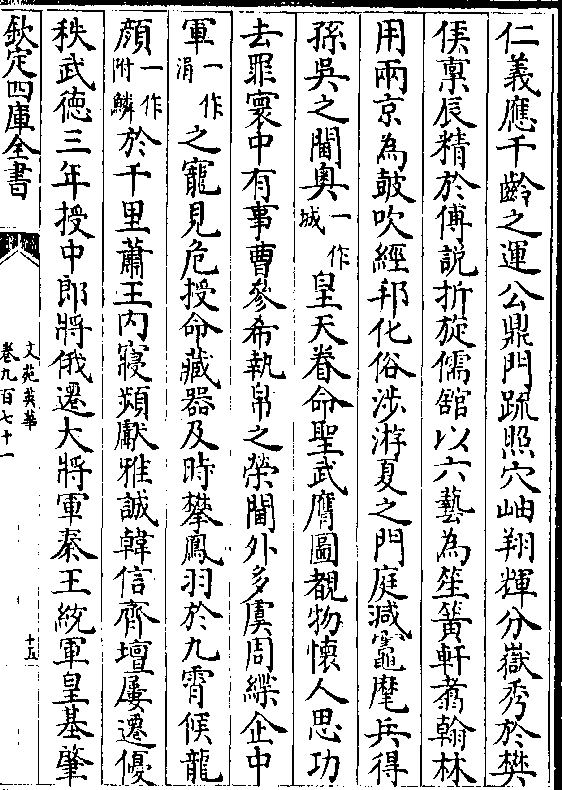 仁義應千齡之運公鼎門疏照穴岫翔輝分嶽秀於樊
侯禀辰精於傅説折旋儒舘以六藝為笙簧軒翥翰林
用兩京為鼓吹經邦化俗涉游夏之門庭減竈麾兵得
孫吳之閫奥一作城皇天眷命聖武膺圖覩物懷人思功
去罪寰中有事曹參希執帛之榮閫外多虞周緤企中
軍一作涓之寵見危授命藏器及時攀鳳羽於九霄候龍
顔一作附鱗於千里蕭王内寢頻獻雅誠韓信齊壇屢遷優
秩武徳三年授中郎將俄遷大將軍秦王統軍皇基肇
欽定四庫全書
文苑英華
卷九百七十一
十五